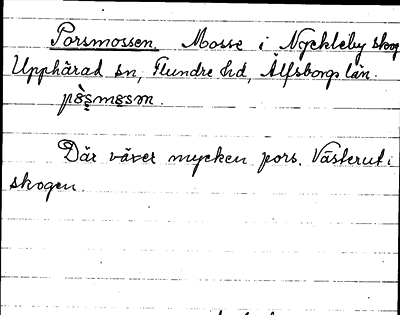 Porsmossen. Mosse i Nyckleby skog
Upphärad sn, Flundre hd, Älfsborgs län.
Där växer mycken pors. Västerut i
skogen.